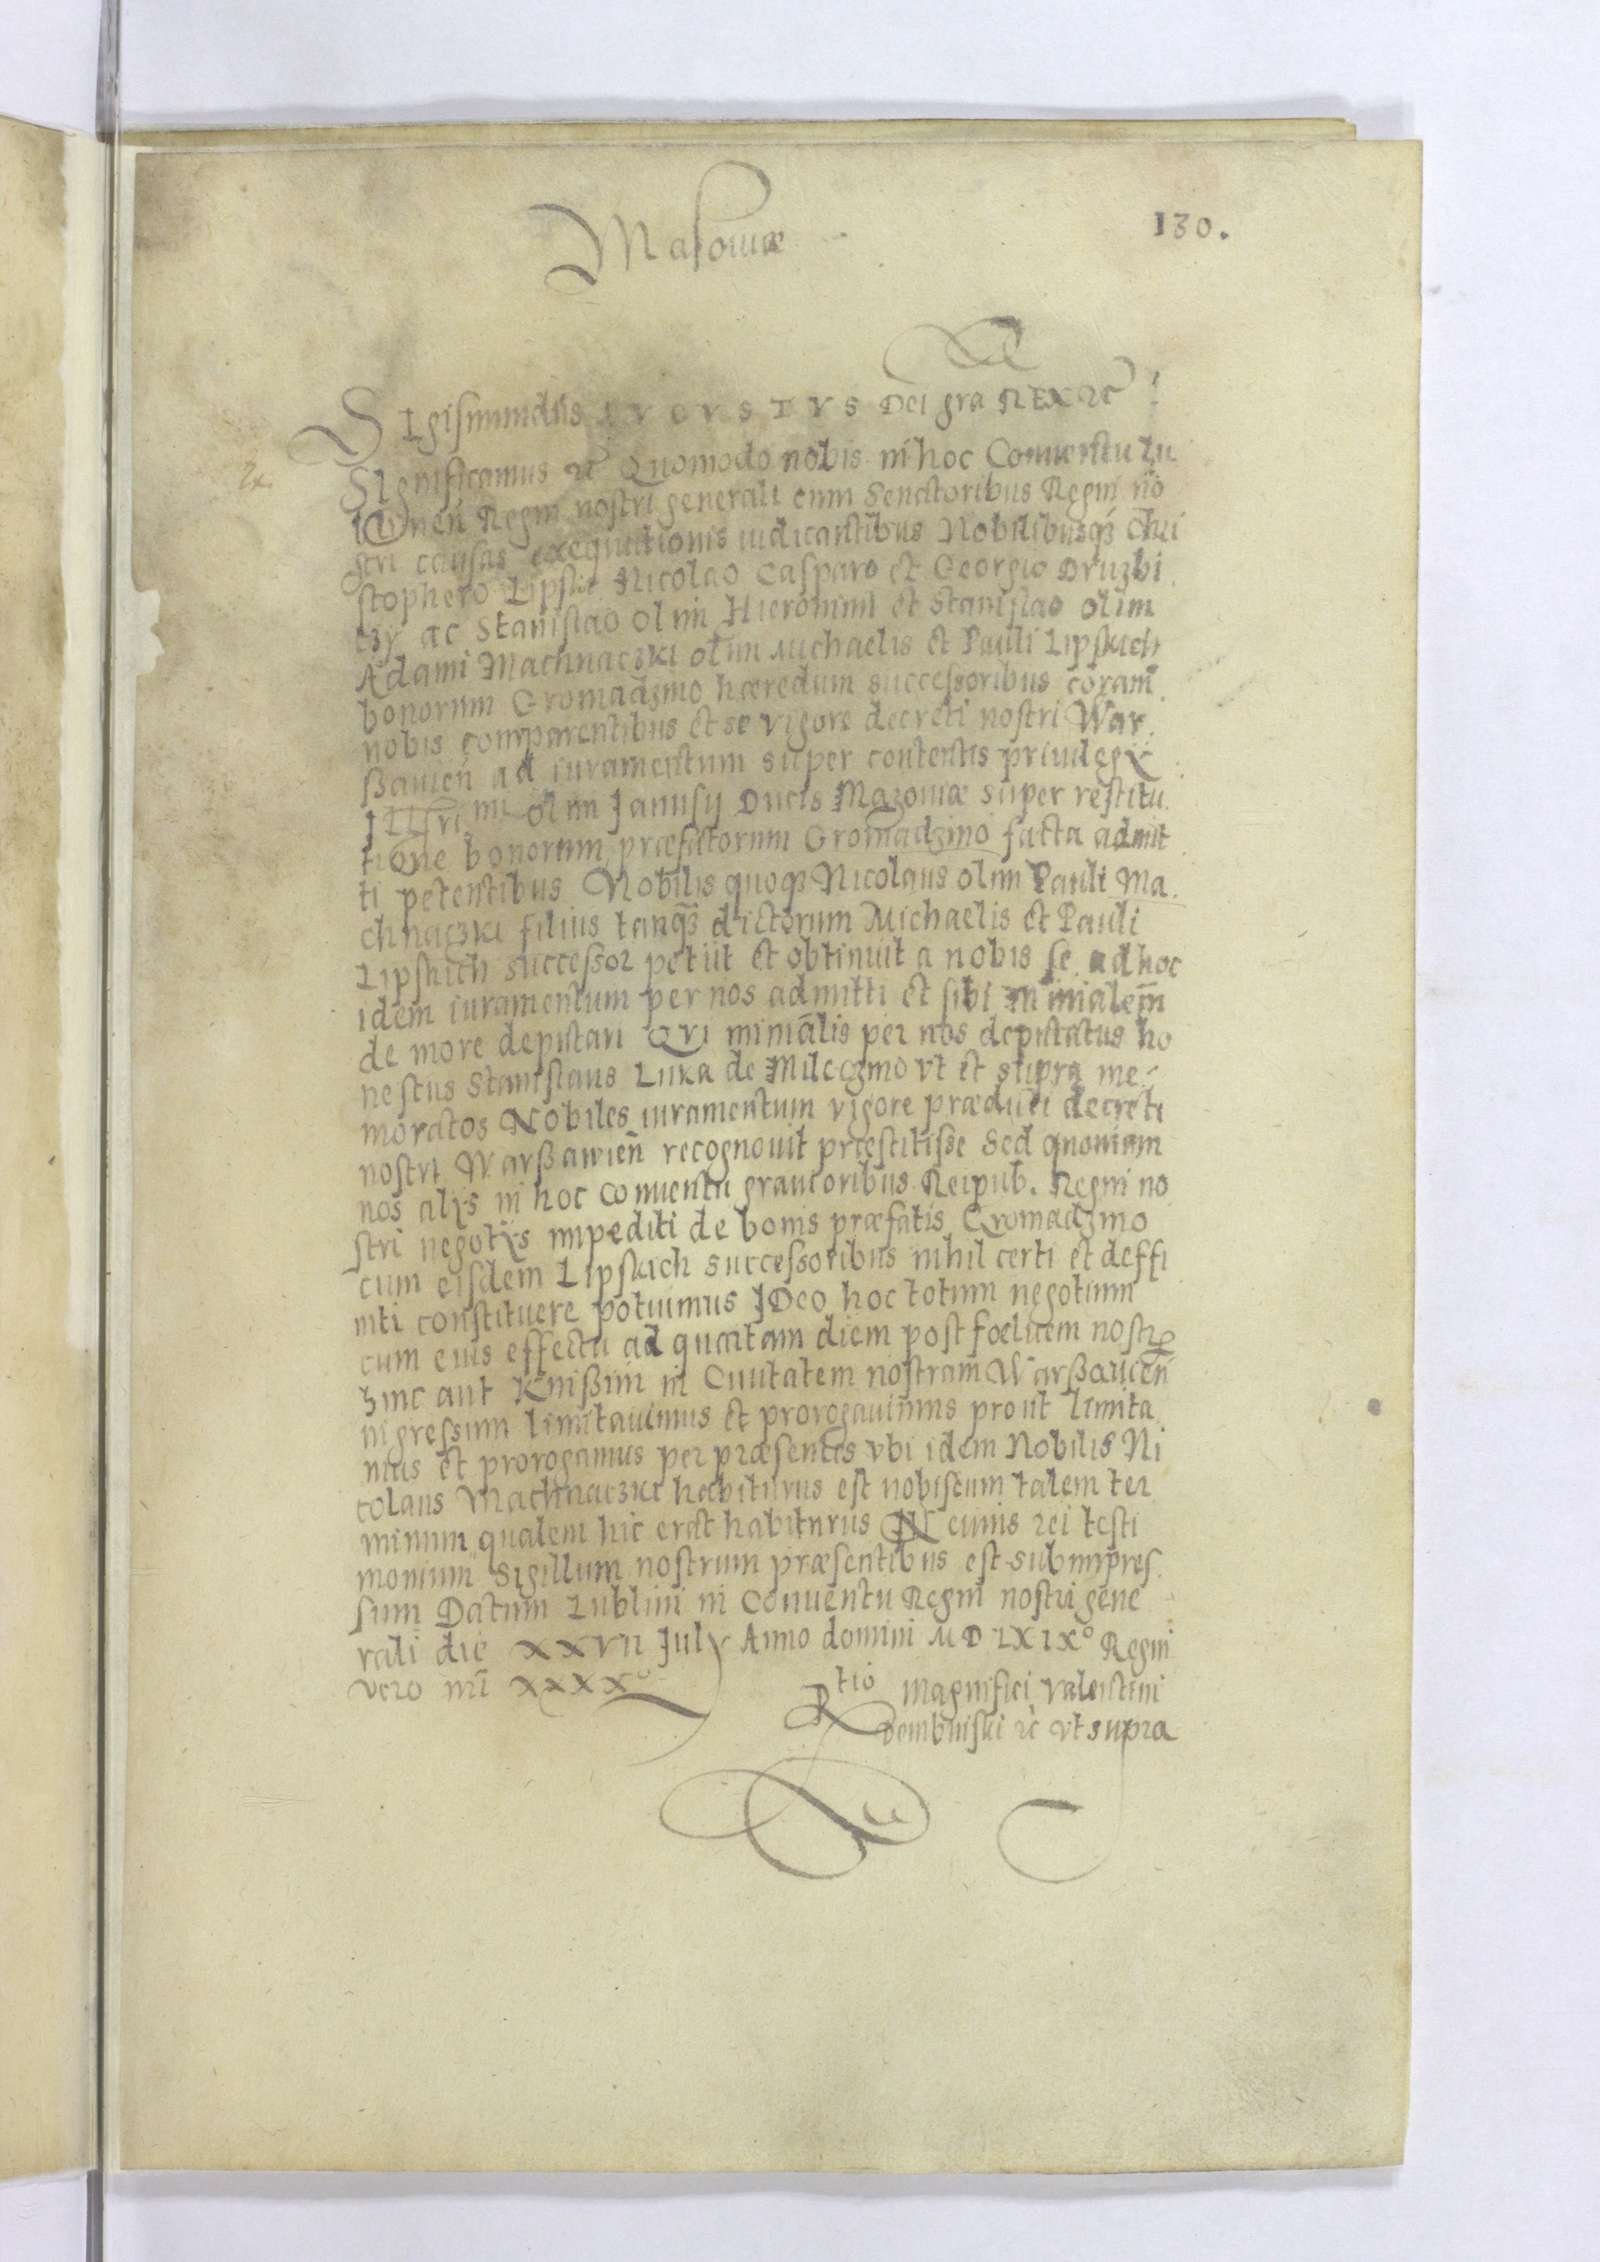 Masouiæ
130.
Sigismundus AVGVSTVS Dei gra REX etc
Significamus etc Quomodo nobis in hoc Conuentu Lu
nen Regni nostri generali cum Senatoribus Regni no
stri causas exequutionis iudicantibus Nobilibusq Chri
stophero Lipskie Nicolao Casparo et Georgio Druzbi
czy ac Stanislao olim Hieronimi et Stanislao olim
Adami Machnaczki olim Michaelis et Pauli Lipskich
bonorum Gromadzino hæredum successoribus coram
nobis comparentibus et se vigore decreti nostri War
ßauien ad iuramentum super contentis priuilegy
Illsrimi olim Janusij Ducis Mazouiæ super restitu
tione bonorum præfatorum Gromadzino facta admit
ti petentibus Nobilis quoq Nicolaus olim Pauli Ma
chnaczki filius tanq dictorum Michaelis et Pauli
Lipskich successor petiit et obtinuit a nobis se ad hoc
idem iuramentum per nos admitti et sibi Minialem
de more deputari Qui minialis per nos deputatus ho
nestus Stanislaus Luka de Mileczino vt et supra me
moratos Nobiles iuramentum vigore præducti decreti
nostri Warßawien recognouit præstitisse Sed quoniam
nos alys in hoc conuentu grauioribus Reipub. Regni no
stri negotys impediti de bonis præfatis Gromadzino
cum eisdem Lipskich successoribus nihil certi et deffi
niti constituere potuimus IDeo hoc totum negotium
cum eius effectu ad quartam diem post fœlicem nostr
hinc aut Knißini in Ciuitatem nostram Warßauien
ingressum limitauimus et prorogauimus prout limita
mus et prorogamus per præsentes vbi idem Nobilis Ni
colaus Machnaczki habiturus est nobiscum talem ter
minum qualem hic erat habiturus IN cuius rei testi
monium Sigillum nostrum præsentibus est subimpres
sum Datum Lublini in Conuentu Regni nostri gene
rali die XXVII July Anno domini MDLXIXo Regni
vero nri XXXXo
Rtio Magnifici Valentini
Dembinski etc vt supra